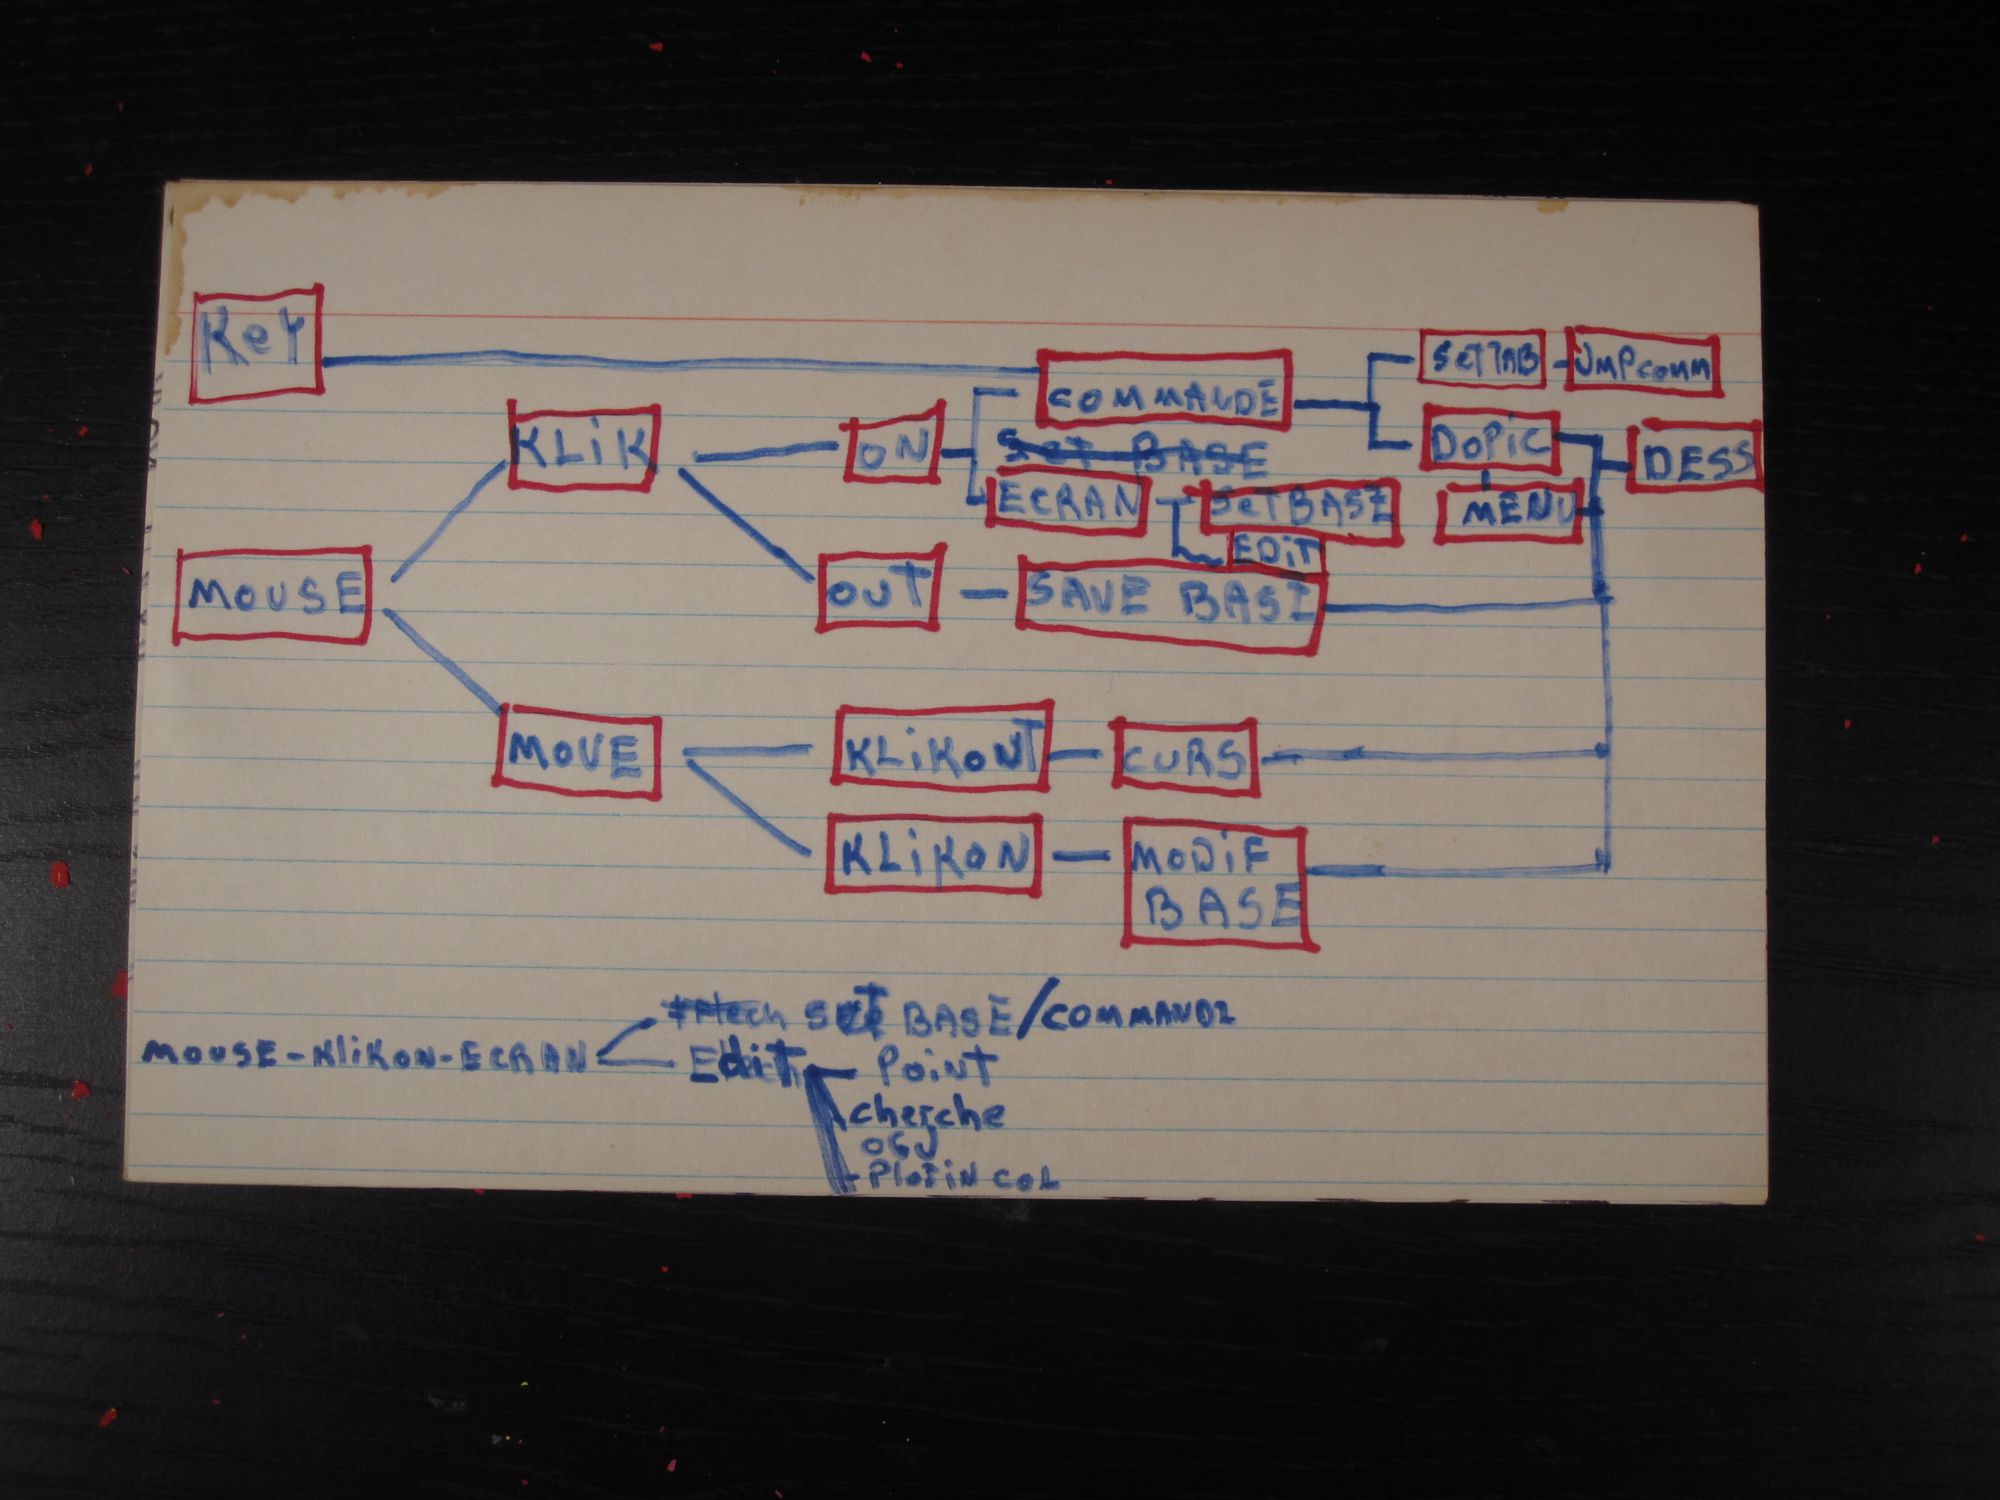 KeY
COMMANDE
SETTAB
JMPcomm
KLiK
ON
Set BASE
DOPiC
DESS
ECRAN
SeTBASE
MENU
EDiT
MOUSE
OUT
SAVE BASE
MOVE
KLiKONT
CURS
KLiKON
MODiF
BASE
SET BASE/COMMANDE
MOUSE-KliKON-ECRAN
Edit
Point
cherche